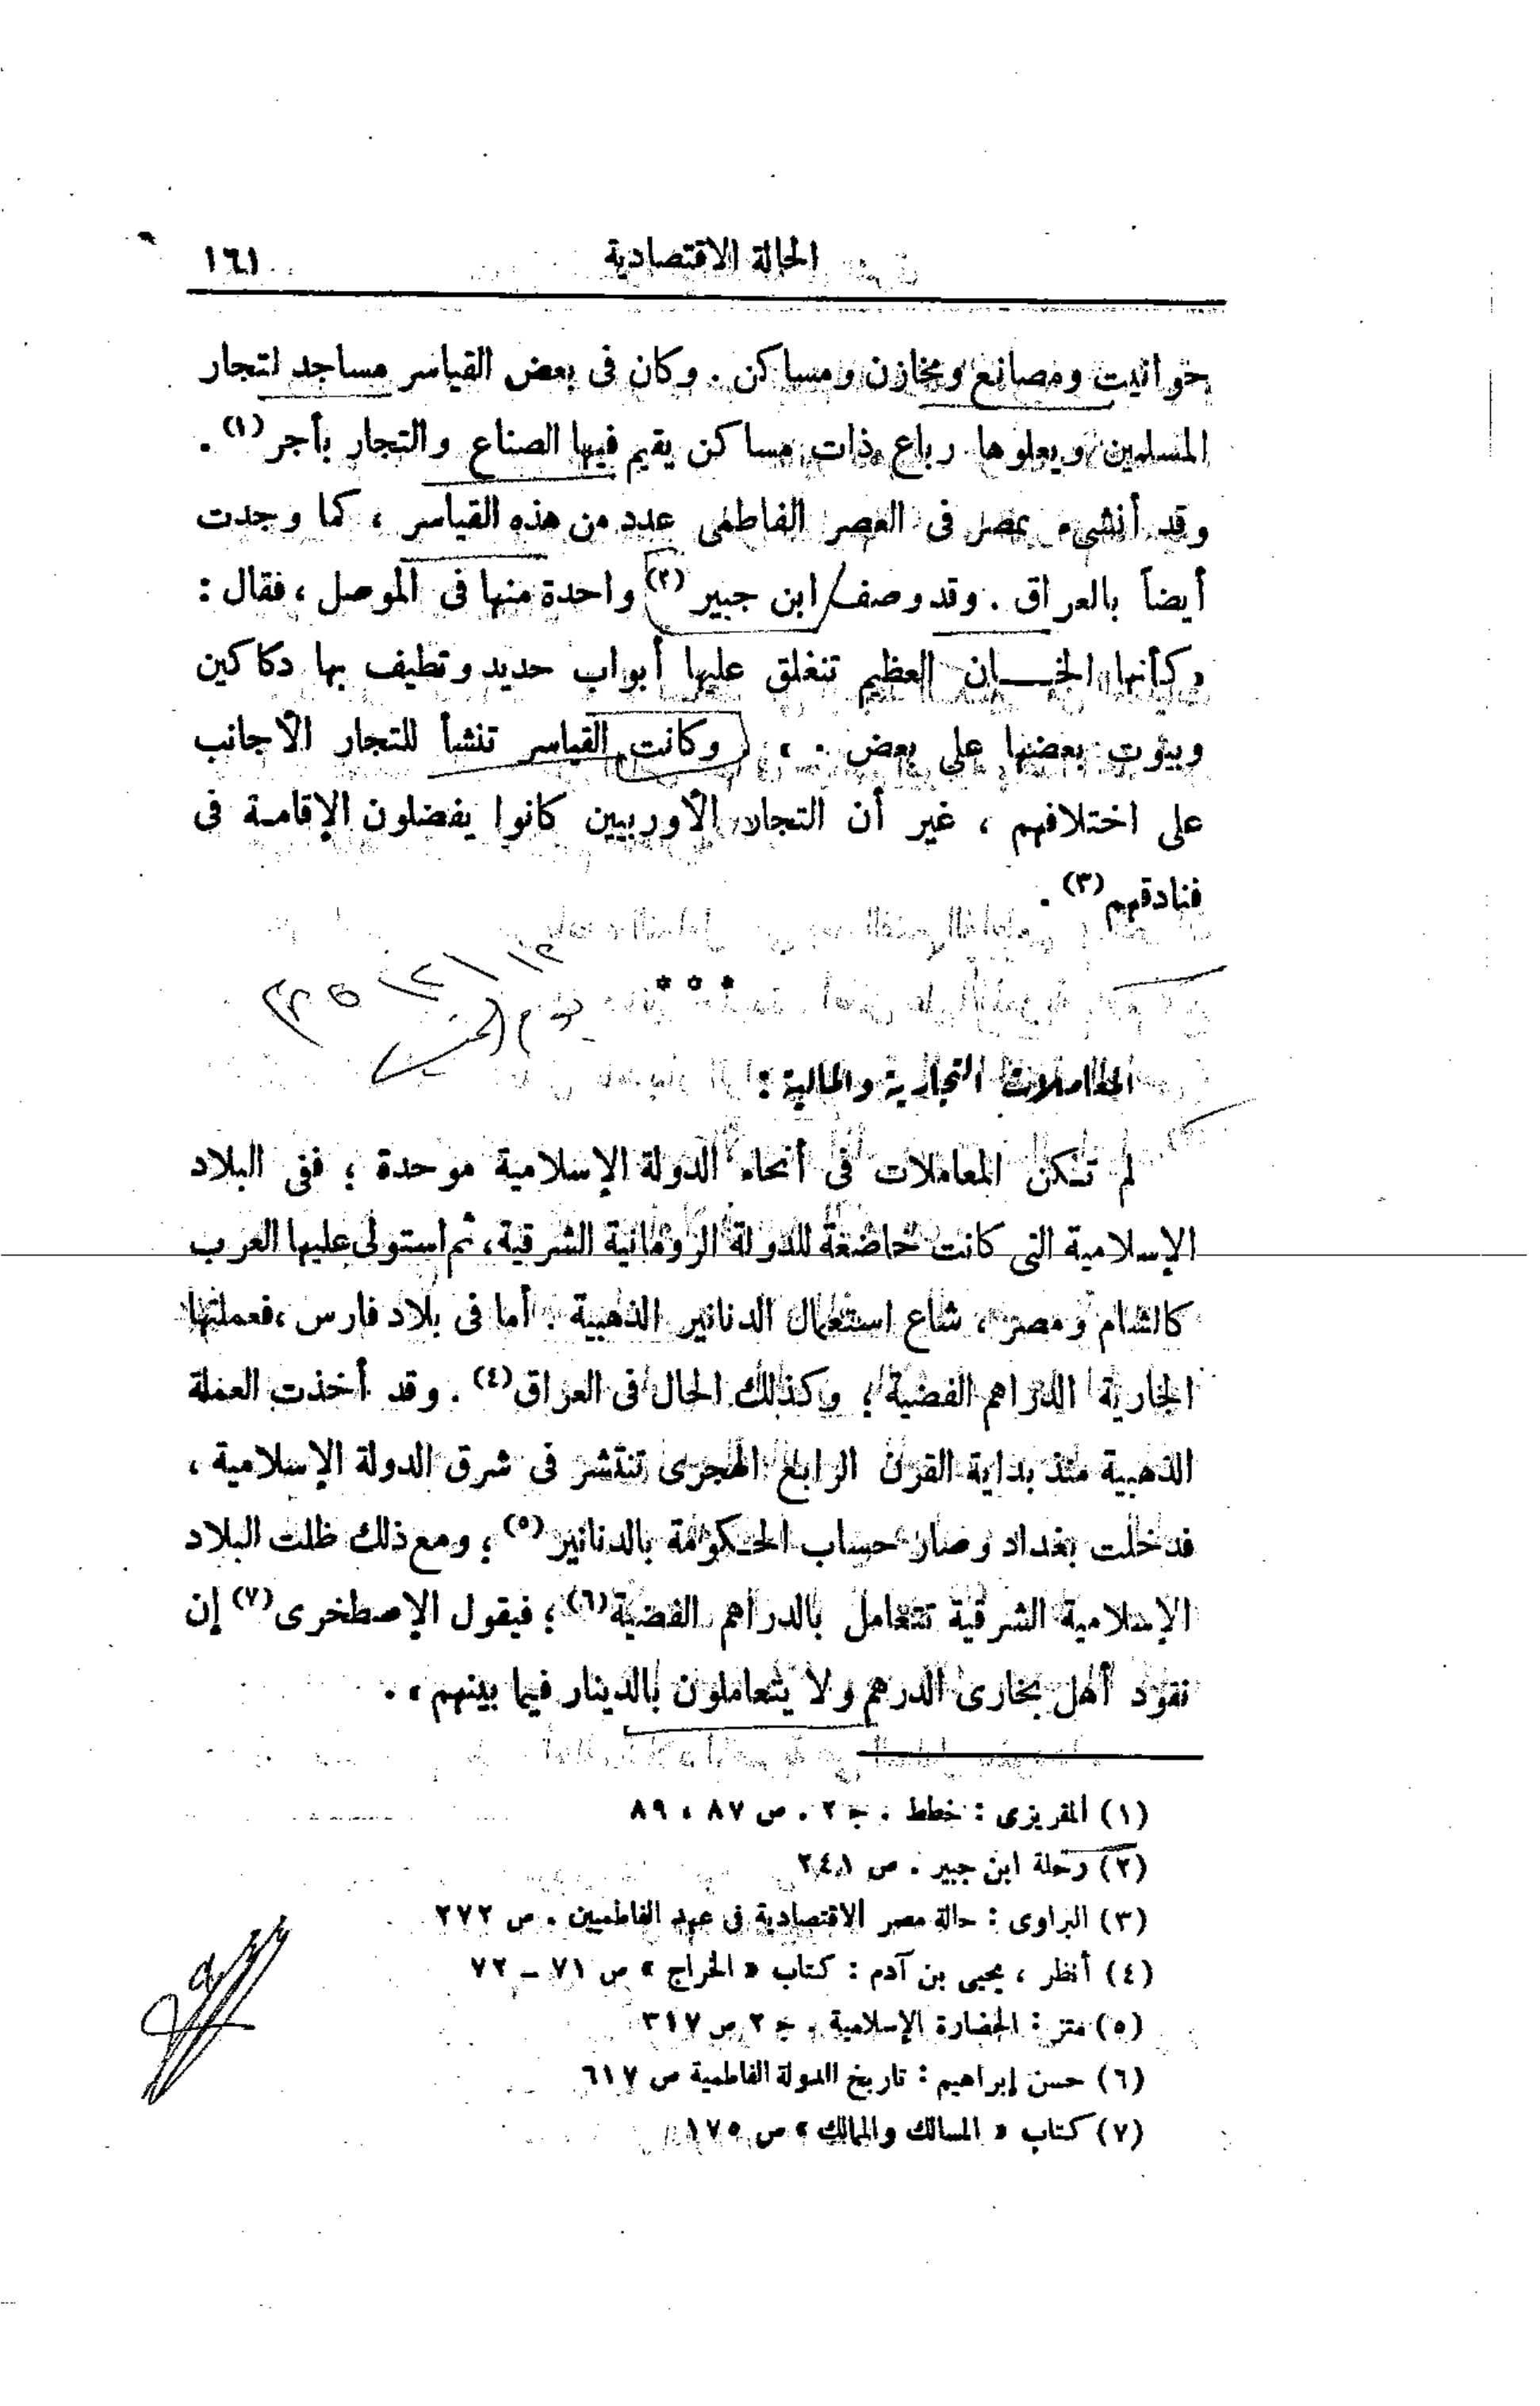 الحالة الاقتصادية ١٦١
حوانيت ومصانع ومخازن ومساكن . وكان فى بعض القياسر مساجد لتجار
المسلمين ويعلوها رباع ذات مساكن يقيم فيها الصناع والتجار بأجر (١) .
وقد أنشىء بمصر فى العصر الفاطمى عدد من هذه القياسر ، كما وجدت
أيضاً بالعراق . وقد وصف ابن جبير (٢) واحدة منها فى الموصل ، فقال :
« كأنها الخـــان العظيم تنغلق عليها أبواب حديد وتطيف بها دكاكين
وبيوت بعضها على بعض . » وكانت القياسر تنشأ للتجار الأجانب
على اختلافهم ، غير أن التجار الأوربيين كانوا يفضلون الإقامة فى
فنادقهم (٣) .
* * *
المعاملات التجارية والمالية :
لم تكن المعاملات فى أنحاء الدولة الإسلامية موحدة ؛ ففى البلاد
الإسلامية التى كانت خاضعة للدولة الرومانية الشرقية ، ثم استولى عليها العرب
كالشام ومصر ، شاع استعمال الدنانير الذهبية . أما فى بلاد فارس ، فعملتها
الجارية الدراهم الفضية ؛ وكذلك الحال فى العراق (٤) . وقد أخذت العملة
الذهبية منذ بداية القرن الرابع الهجرى تنتشر فى شرق الدولة الإسلامية ،
فدخلت بغداد وصار حساب الحكومة بالدنانير (٥) ؛ ومع ذلك ظلت البلاد
الإسلامية الشرقية تتعامل بالدراهم الفضية (٦) ؛ فيقول الإصطخرى (٧) إن
نقود أهل بخارى الدرهم ولا يتعاملون بالدينار فيما بينهم » .
(١) المقريزى : خطط . ج ٢ . ص ٨٧ ، ٨٩
(٢) رحلة ابن جبير . ص ٢٤٨
(٣) البراوى : حالة مصر الاقتصادية فى عهد الفاطميين . ص ٢٧٢
(٤) أنظر ، يحيى بن آدم : كتاب « الخراج » ص ٧١ - ٧٢
(٥) متز : الحضارة الإسلامية . ج ٢ ص ٣١٧
(٦) حسن إبراهيم : تاريخ الدولة الفاطمية ص ٦١٧
(٧) كتاب « المسالك والممالك » ص ١٧٥